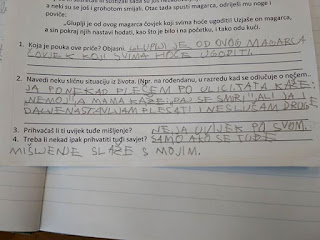 a neki su se još i grohotom smijali. Otac tada spusti magarca, odriješi mu noge i
poviče:
„Gluplji je od ovog magarca čovjek koji svima hoće ugoditi! Uzjaše on magarca,
a sin pokraj njih nastavi hodati, kao što je bilo i na početku, i tako odu kući.
1. Koja je pouka ove priče? Objasni. GLUPLJI JE OD OVOG MAGARCA
ČOVJEK KOJI SVIMA HOĆE UGODITI.
2. Navedi neku sličnu situaciju iz života. (Npr. na rođendanu, u razredu kad se odlučuje o nečem...
JA PONEKAD PLEŠEM PO ULICI TATA KAŽE:
NEMOJ", A MAMA KAŽE: „PAJ SE SMIRI" ALI JA I
DALJE NASTAVLJAM PLESATI I NE SLUŠAM DRUGE
3. Prihvaćaš li ti uvijek tuđe mišljenje? NE JA UVIJEK PO SVOM.
4. Treba li nekad ipak prihvatiti tuđi savjet? SAMO AKO SE TUĐE
MIŠLJENJE SLAŽE S MOJIM.